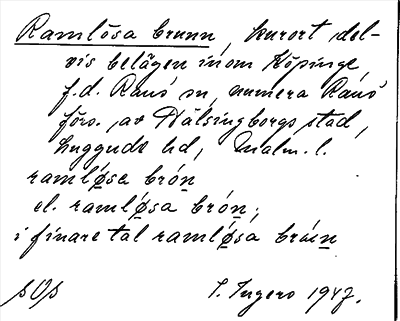 Ramlösa brunn, kurort del-
vis belägen inom Köpinge
f.d. Raus sn, numera Raus
förs. av Hälsingborgs stad,
Luggude hd, Malm. l.
ramlø̱sa brón̲
el. ramlø̱sa brón̲;
i finare tal ramlø̱sa brún̲
SOs I. Ingers 1947.